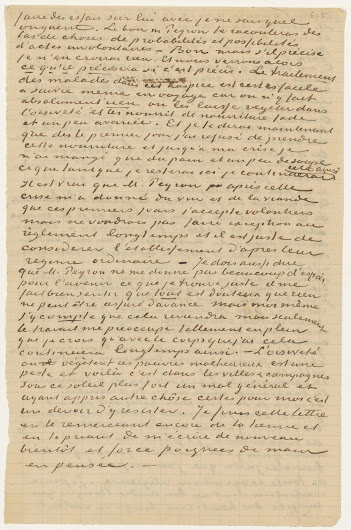 faire des essais sur lui avec je ne sais quel
onguent. Le bon M. Peyron te racontera des
tas de choses de probabilités et possibilités
d'actes involontaires – Bon mais s'il précise
je n'en croirai rien. Et nous verrons alors
ce qu'il précisera si c'est précis. Le traitement
des malades dans cet hospice est certes facile
à suivre même en voyage car on n'y fait
absolument rien on les laisse végéter dans
l'oisiveté et les nourrit de nourriture fade
et un peu avariée. Et je te dirai maintenant
que dès le premier jour j'ai refusé de prendre
cette nourriture et jusqu'à ma crise je
n'ai mangé que du pain et un peu de soupe
ce que tant que je resterai ici je continuerai
ainsi
Il est vrai que M. Peyron après cette
crise m'a donné du vin et de la viande
que ces premiers jours j'accepte volontiers
mais ne voudrais pas faire exception au
règlement longtemps et il est juste de
considérer l'établissement d'après leur
régime ordinaire – Je dois aussi dire
que M. Peyron ne me donne pas beaucoup d'espoir
pour l'avenir ce que je trouve juste il me
fait bien sentir que tout est douteux que rien
ne peut être assuré d'avance Mais moi même
j'y compte que cela reviendra mais seulement
le travail me préoccupe tellement en plein
que je crois qu'avec le corps que j'ai cela
continuera longtemps ainsi. – L'oisiveté
où végètent ces pauvres malheureux est une
peste et voilà c'est dans les villes et campagnes
sous ce soleil plus fort un mal général et
ayant appris autre chose certes pour moi c'est
un devoir d'y résister. Je finis cette lettre
en te remerciant encore de la tienne et
en te priant de m'écrire de nouveau
bientôt et force poignées de main
en pensée. –